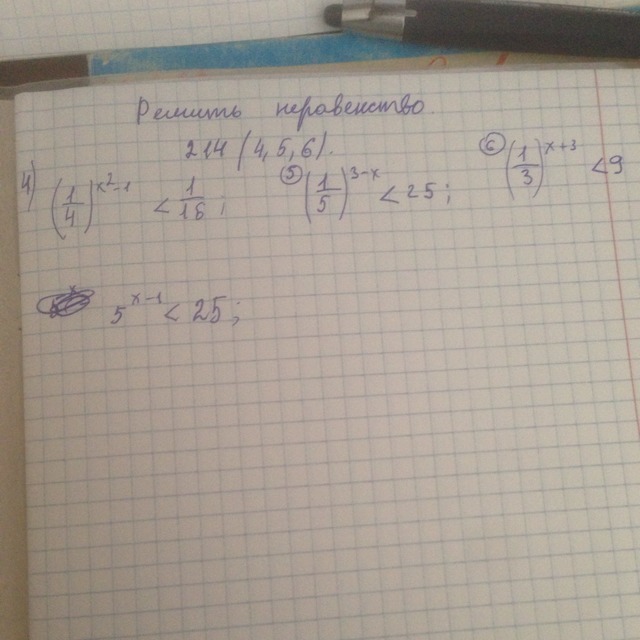 Решить неравенство.
214 (4, 5, 6).
4) (1/4)^(x²-1) < 1/16; ⑤ (1/5)^(3-x) < 25; ⑥ (1/3)^(x+3) < 9
5^(x-1) < 25;